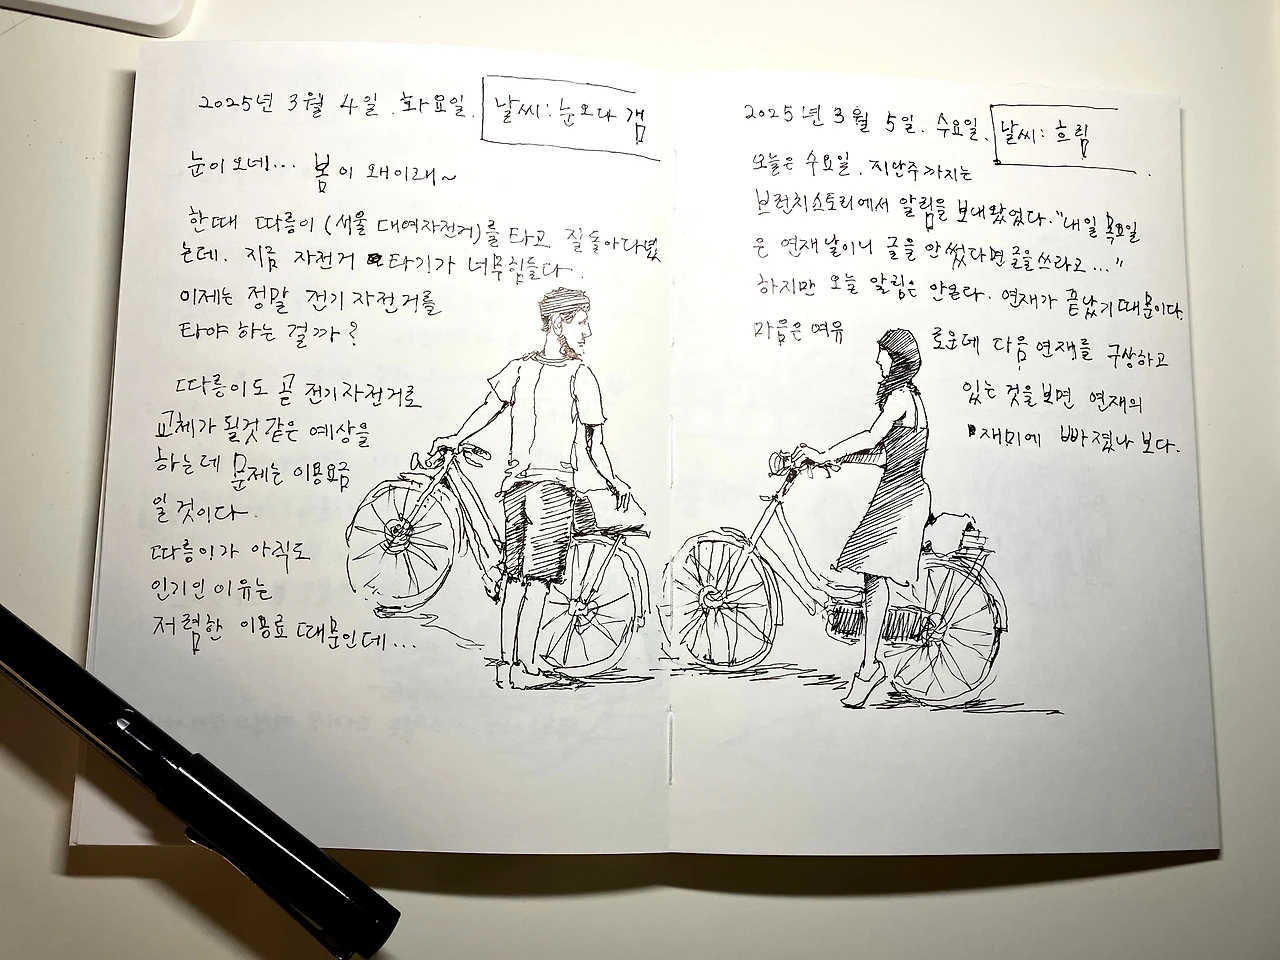 2025년 3월 4일. 화요일. 날씨: 눈오다 갬
눈이 오네... 봄이 왜이래~
한때 따릉이 (서울 대여자전거)를 타고 잘돌아다녔
는데. 지금 자전거 타기가 너무힘들다.
이제는 정말 전기 자전거를
타야 하는 걸까?
따릉이도 곧 전기자전거로
교체가 될것 같은 예상을
하는데 문제는 이용요금
일 것이다.
따릉이가 아직도
인기인 이유는
저렴한 이용료 때문인데...
2025년 3월 5일. 수요일. 날씨: 흐림
오늘은 수요일. 지난주 까지는
브런치스토리에서 알림을 보내왔었다. "내일 목요일
은 연재날이니 글을 안썼다면 글을쓰라고..."
하지만 오늘 알림은 안온다. 연재가 끝났기 때문이다.
마음은 여유로운데 다음 연재를 구상하고
있는 것을보면 연재의
재미에 빠졌나 보다.